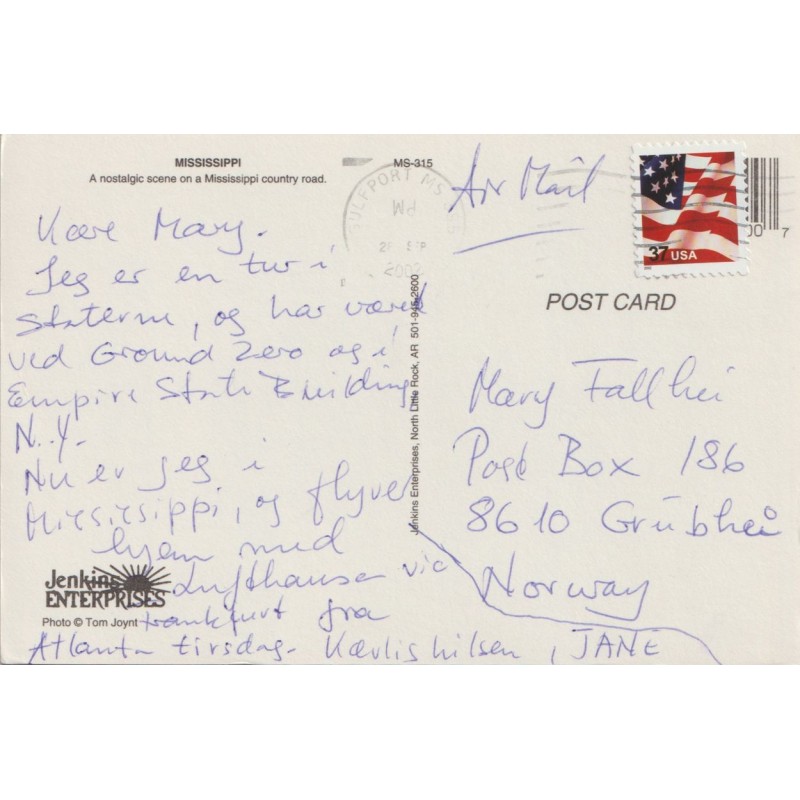 MISSISSIPPI
A nostalgic scene on a Mississippi country road.
MS-315
GULFPORT MS
PM
2002
Air Mail
37 USA
00 7
POST CARD
Kære Mary.
Jeg er en tur i
Staterne, og har været
ved Ground Zero og i
Empire State Building
N.Y.
Nu er jeg i
Missisippi, og flyver
hjem med
Lufthansa via
Frankfurt fra
Atlanta tirsdag. Kærlig hilsen, JANE
Mary Fallhei
Post Box 186
8610 Grubhei
Norway
Jenkins Enterprises, North Little Rock, AR 501-945-2600
Jenkins
ENTERPRISES
Photo © Tom Joynt